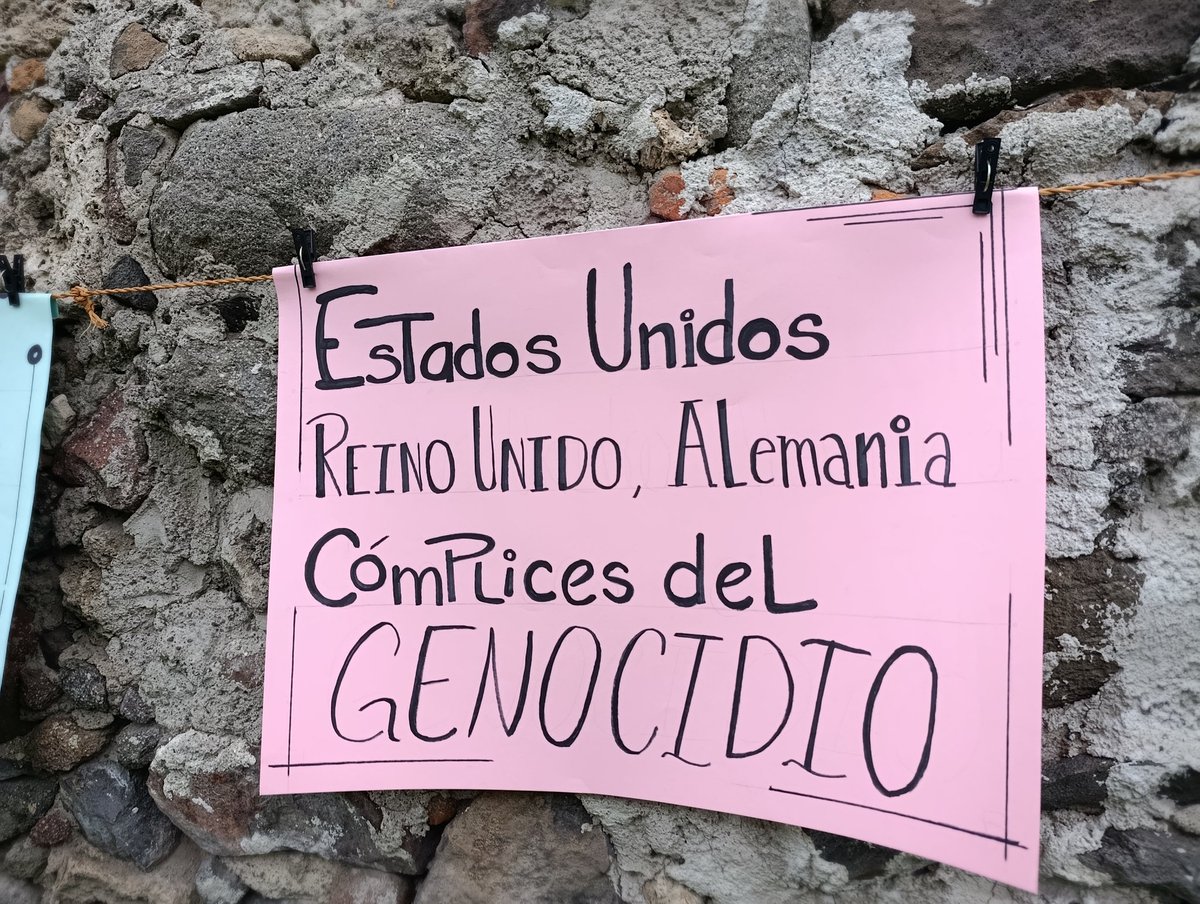 Estados Unidos
REINO UNIDO, ALemania
CómPLices deL
GENOCIDIO